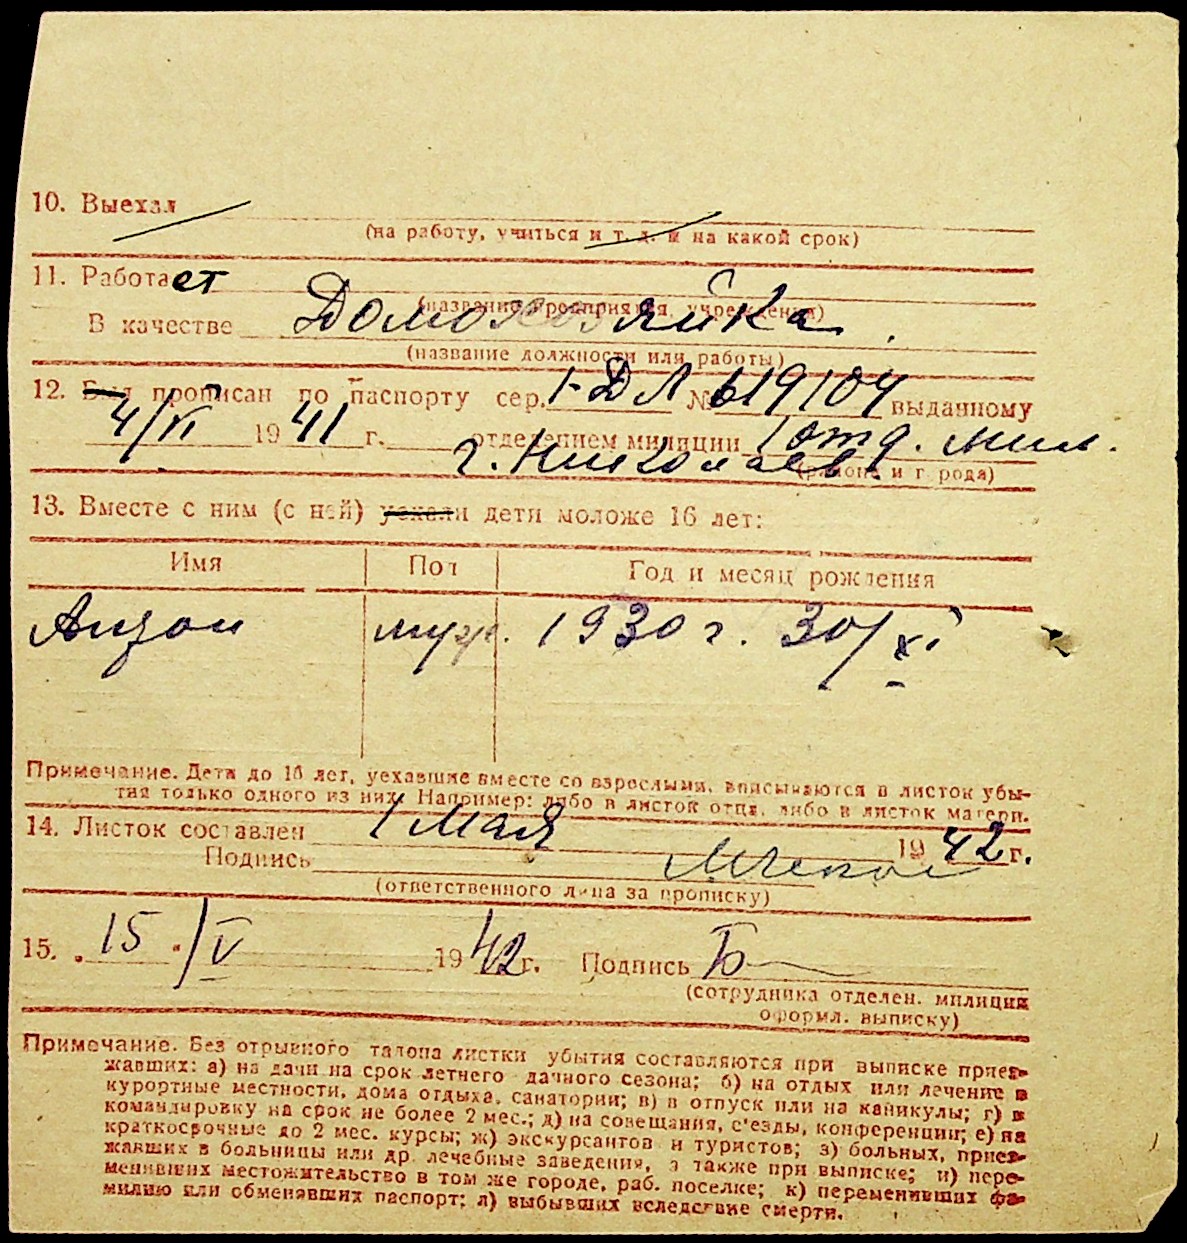 10. Выехал
(на работу, учиться и т. д. и на какой срок)
11. Работает
(название предприятия, учреждения)
В качестве Домохозяйка
(название должности или работы)
12. Был прописан по паспорту сер. 1-ДЛ № 619104 выданному
4/VI 1941 г. отделением милиции 1 отд. мил.
г. Николаев
(района и города)
13. Вместе с ним (с ней) уехали дети моложе 16 лет:
Имя Пол Год и месяц рождения
муж. 1930 г. 30/XI
Примечание. Дети до 16 лет, уехавшие вместе со взрослыми, вписываются в листок убы-
тия только одного из них. Например: либо в листок отца, либо в листок матери.
14. Листок составлен 1 Мая 1942 г.
Подпись
(ответственного лица за прописку)
15. „15“/V 1942 г. Подпись
(сотрудника отделен. милиции
оформл. выписку)
Примечание. Без отрывного талона листки убытия составляются при выписке приез-
жавших: а) на дачи на срок летнего дачного сезона; б) на отдых или лечение в
курортные местности, дома отдыха, санатории; в) в отпуск или на каникулы; г) в
командировку на срок не более 2 мес.; д) на совещания, с'езды, конференции; е) на
краткосрочные до 2 мес. курсы; ж) экскурсантов и туристов; з) больных, приез-
жавших в больницы или др. лечебные заведения, а также при выписке; и) пере-
менивших местожительство в том же городе, раб. поселке; к) переменивших фа-
милию или обменявших паспорт; л) выбывших вследствие смерти.